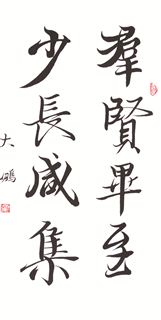 羣賢畢至
少長咸集
大鵬